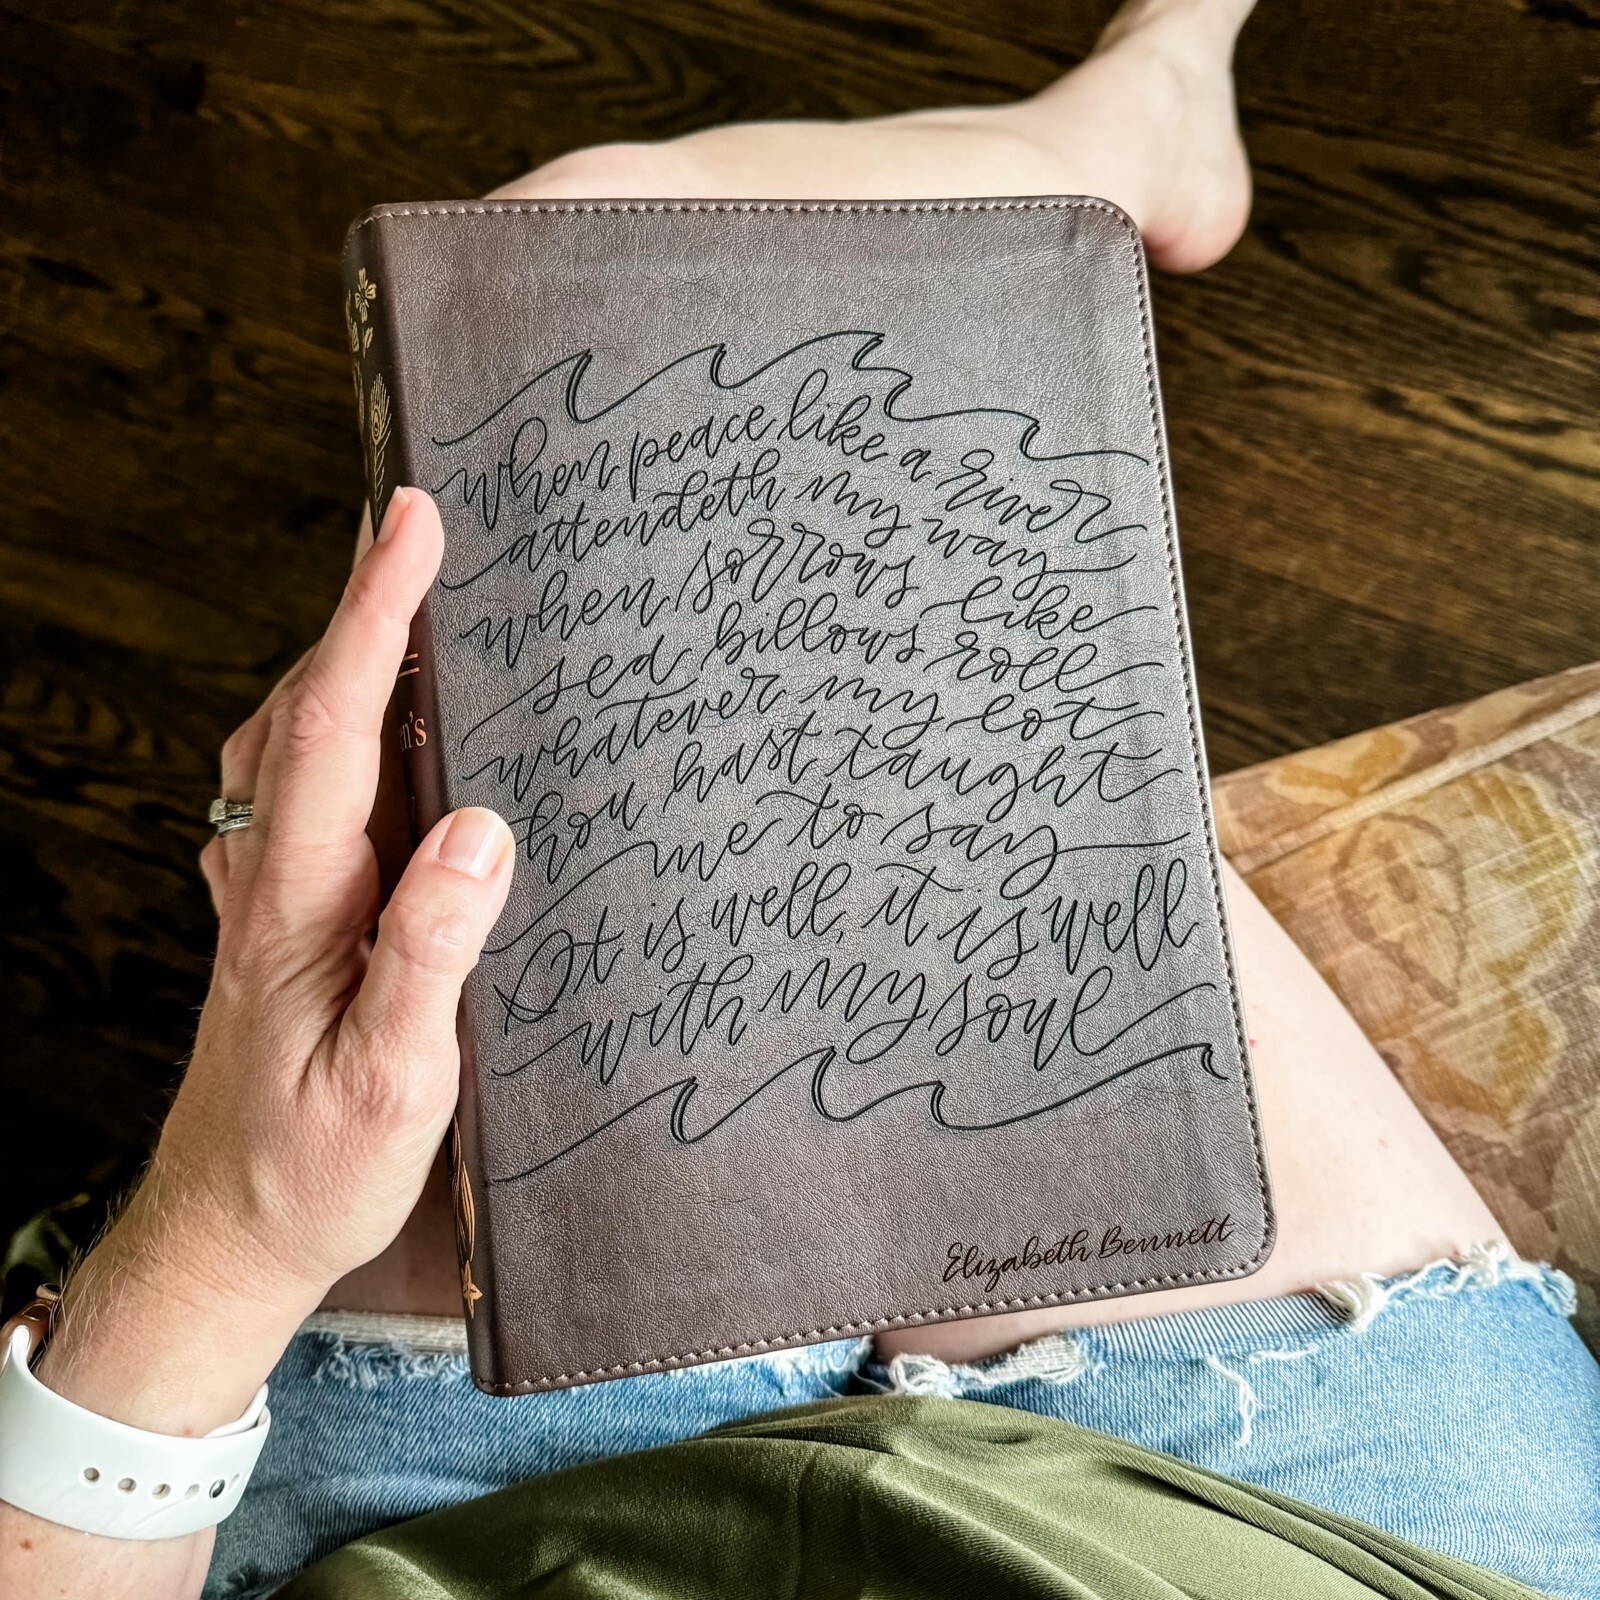 when peace like a river
attendeth my way
when sorrows like
sea billows roll
whatever my lot
thou hast taught
me to say
It is well, it is well
with my soul
Elizabeth Bennett